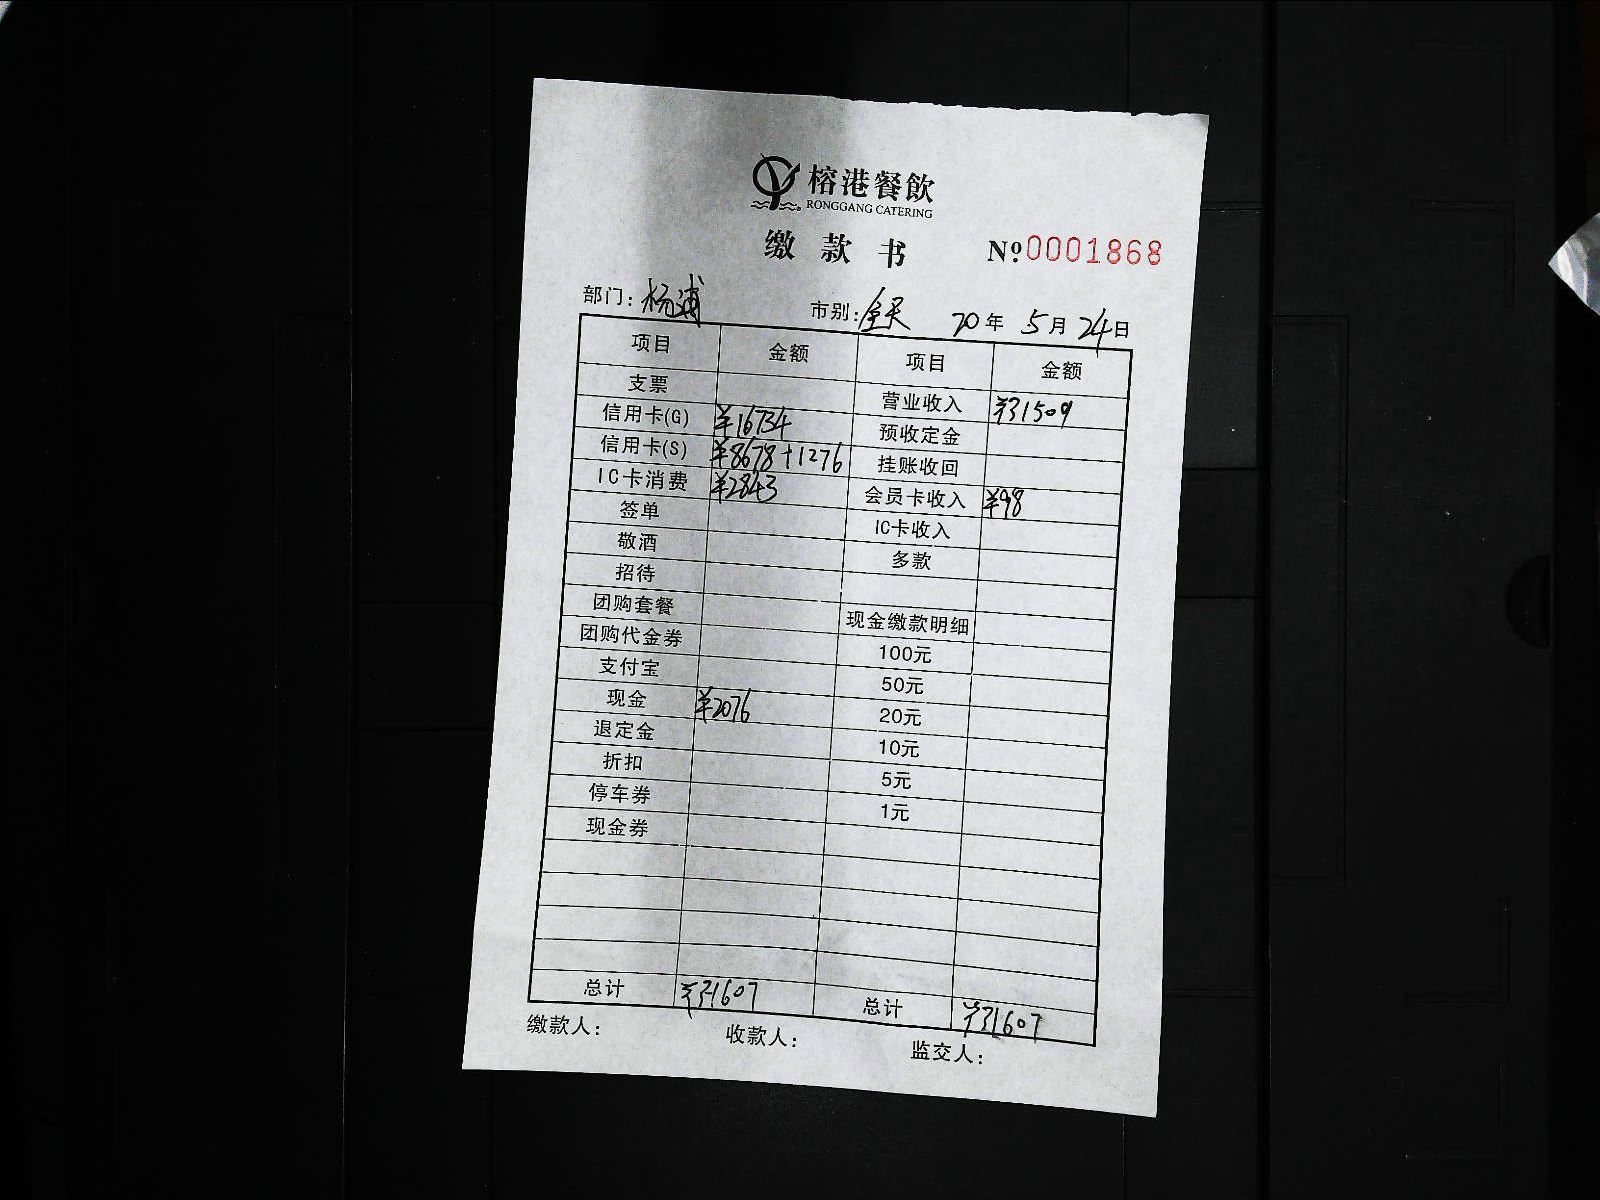 榕港餐飲
RONGGANG CATERING
缴款书 Nº0001868
部门：杨浦 市别：全天 20年 5月 24日
项目 金额 项目 金额
支票 营业收入 ¥31509
信用卡(G) ¥16734 预收定金
信用卡(S) ¥8678+1276 挂账收回
IC卡消费 ¥2843 会员卡收入 ¥98
签单 IC卡收入
敬酒 多款
招待
团购套餐 现金缴款明细
团购代金券 100元
支付宝 50元
现金 ¥2076 20元
退定金 10元
折扣 5元
停车券 1元
现金券
总计 ¥31607 总计 ¥31607
缴款人： 收款人： 监交人：